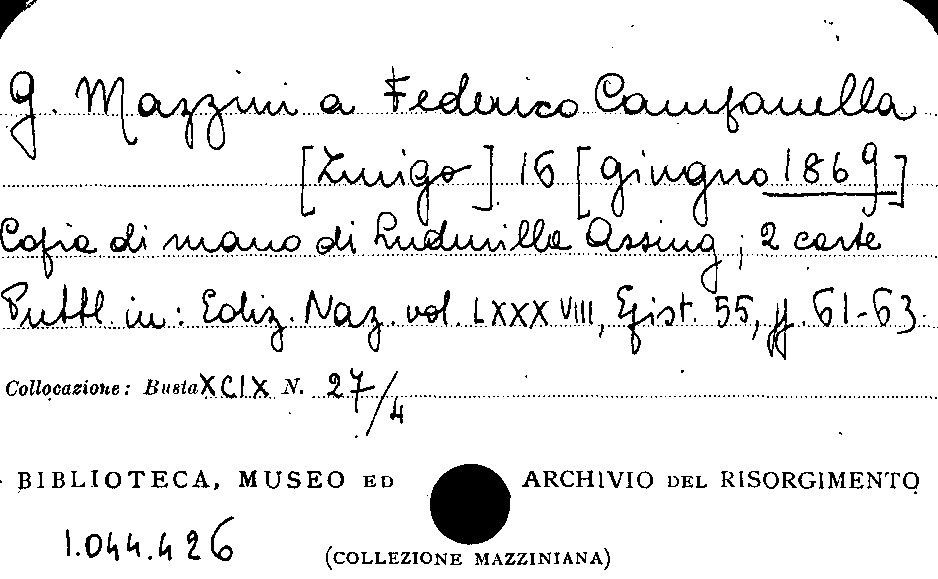 G. Mazzini a Federico Campanella
[Zurigo] 16 [giugno 1869]
Copia di mano di Ludmilla Assing; 2 carte
Pubbl. in: Ediz. Naz. vol. LXXXVIII, Epist. 55, pp. 61-63.
Collocazione: Busta XCIX N. 27/4
BIBLIOTECA, MUSEO ED ARCHIVIO DEL RISORGIMENTO
1.044.426
(COLLEZIONE MAZZINIANA)